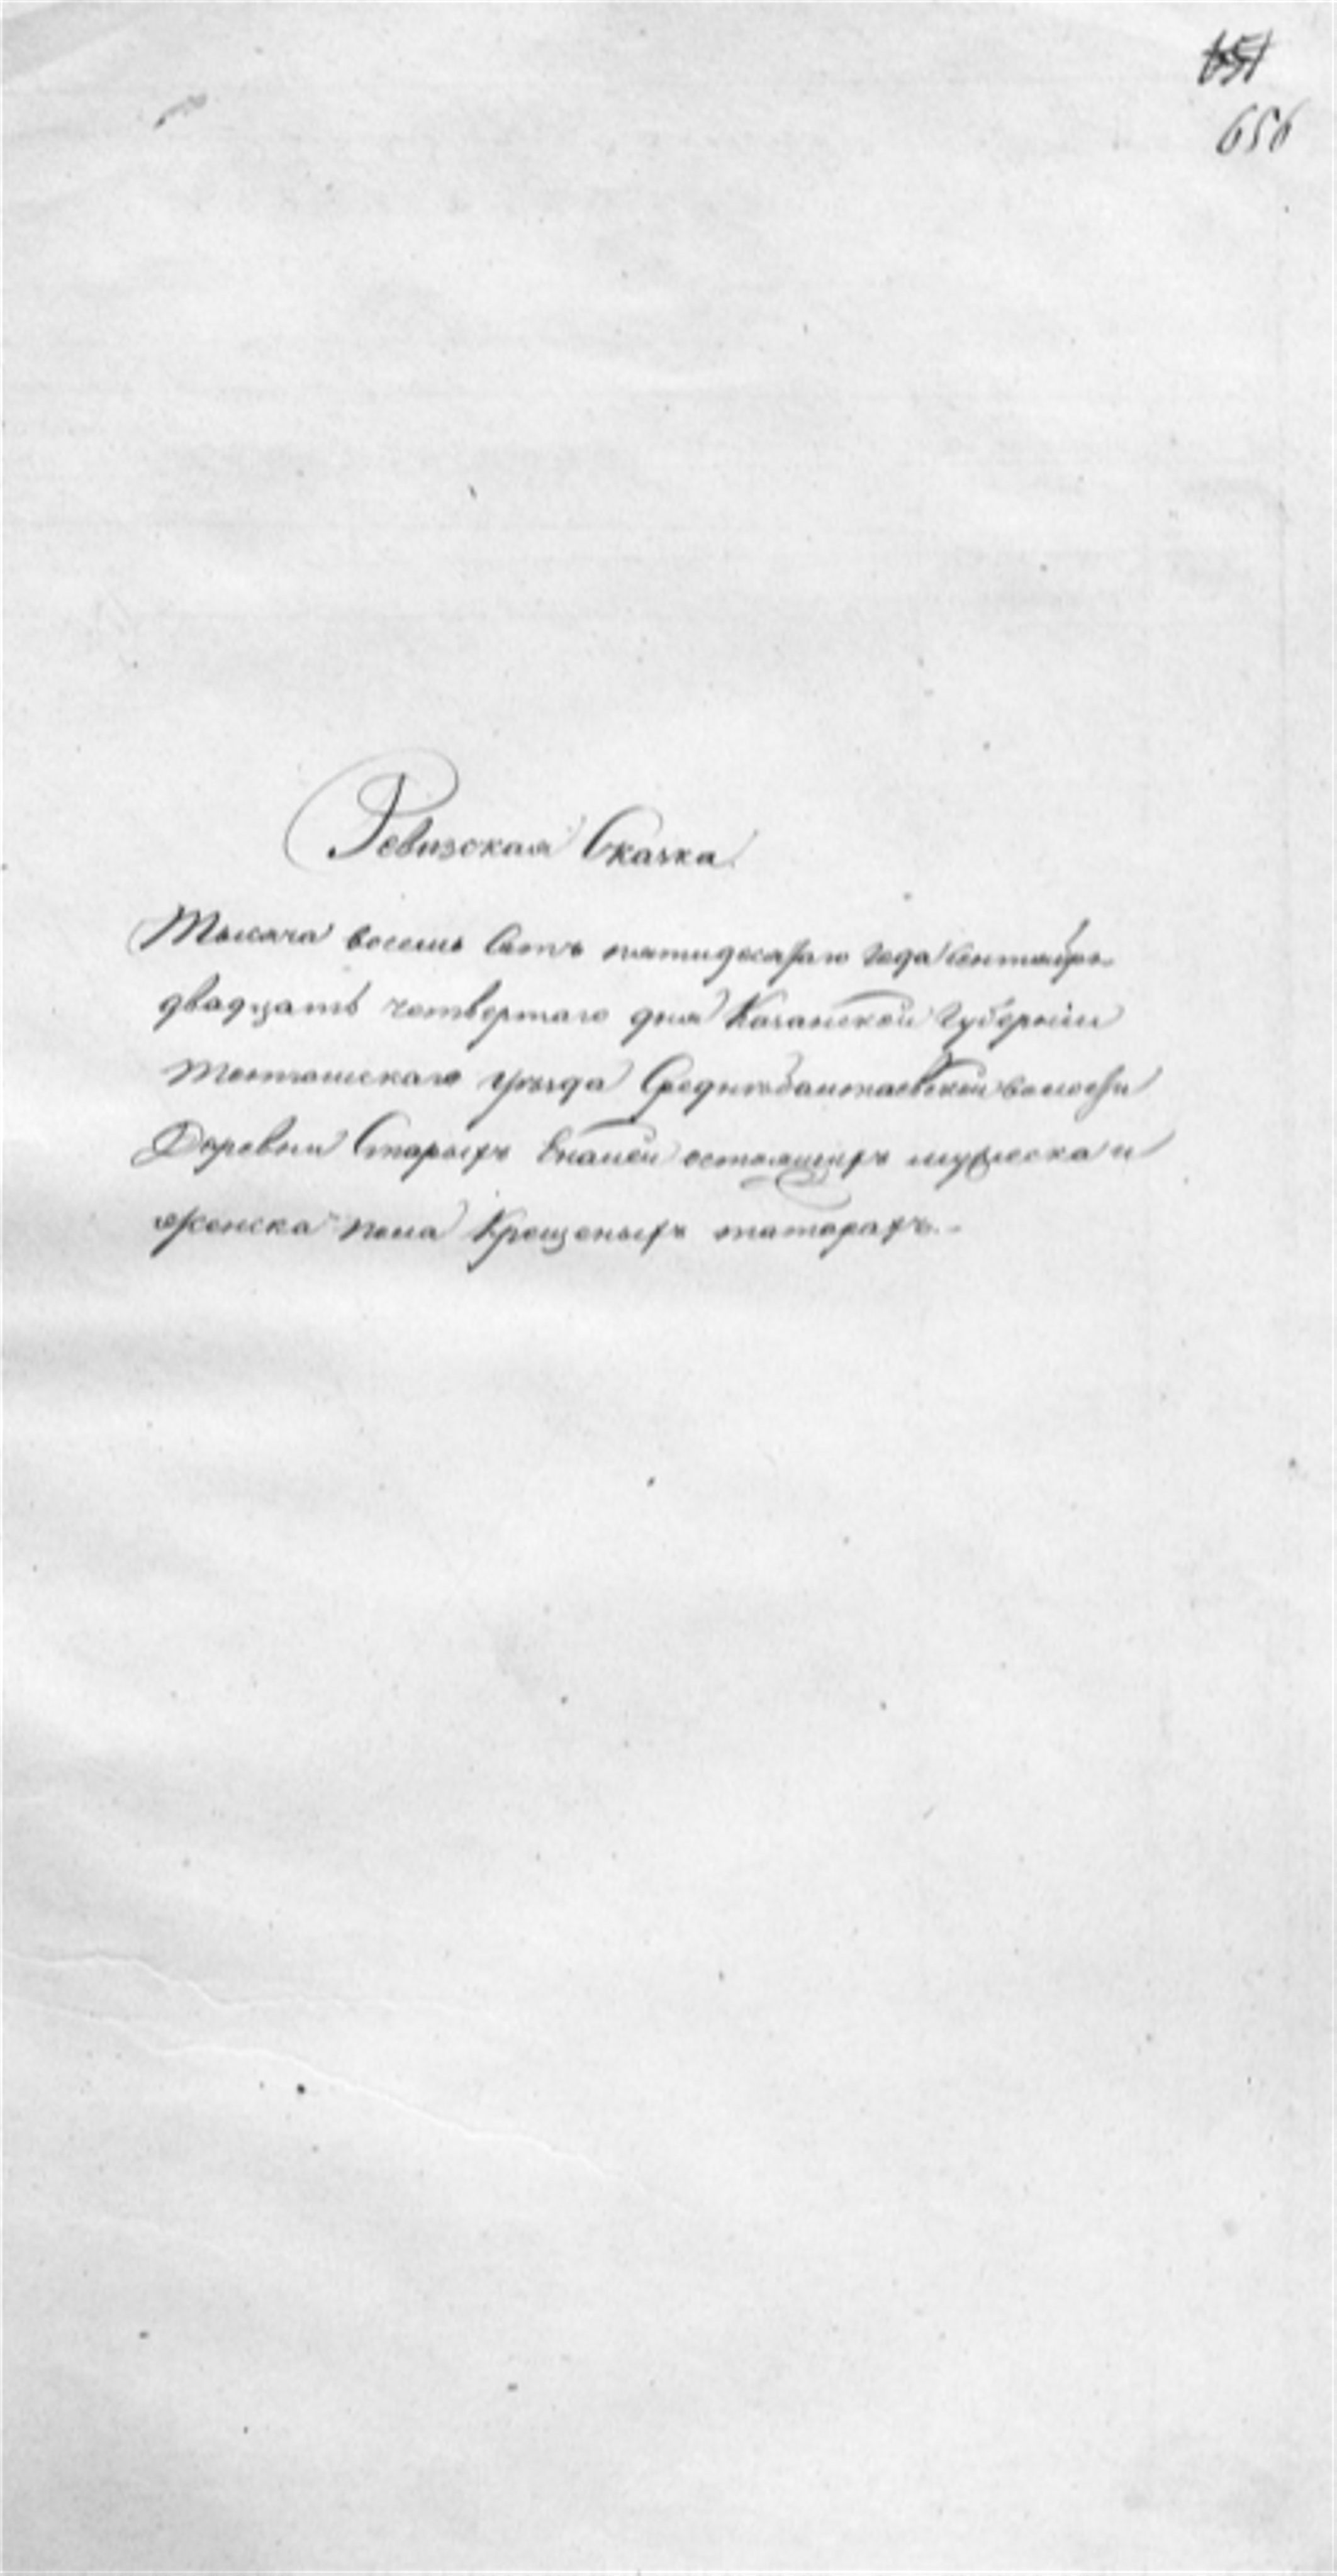 651
656
Ревизская Сказка.
Тысяча восемь сотъ пятидесятаго года Сентября
двадцать четвертаго дня Казанской губерніи
Тетюшскаго уѣзда Среднебалтаевской волости
Деревни Старыхъ Еналей остоящихъ мужеска и
женска пола Крещеныхъ татарахъ.